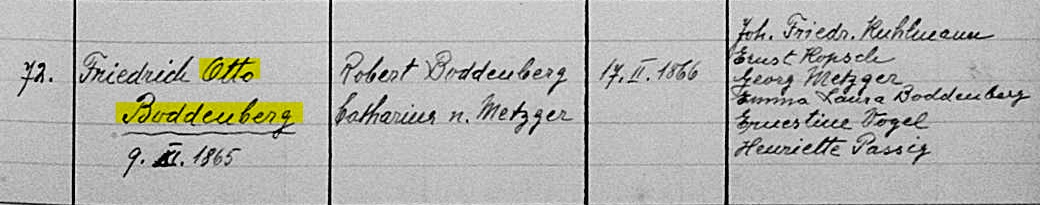 72.
Friedrich Otto
Boddenberg
9. XI. 1865
Robert Boddenberg
Catharina n. Metzger
17. II. 1866
Joh. Friedr. Kuhlmann
Ernst Kopsch
Georg Metzger
Emma Laura Boddenberg
Ernestine Vogel
Henriette Passig